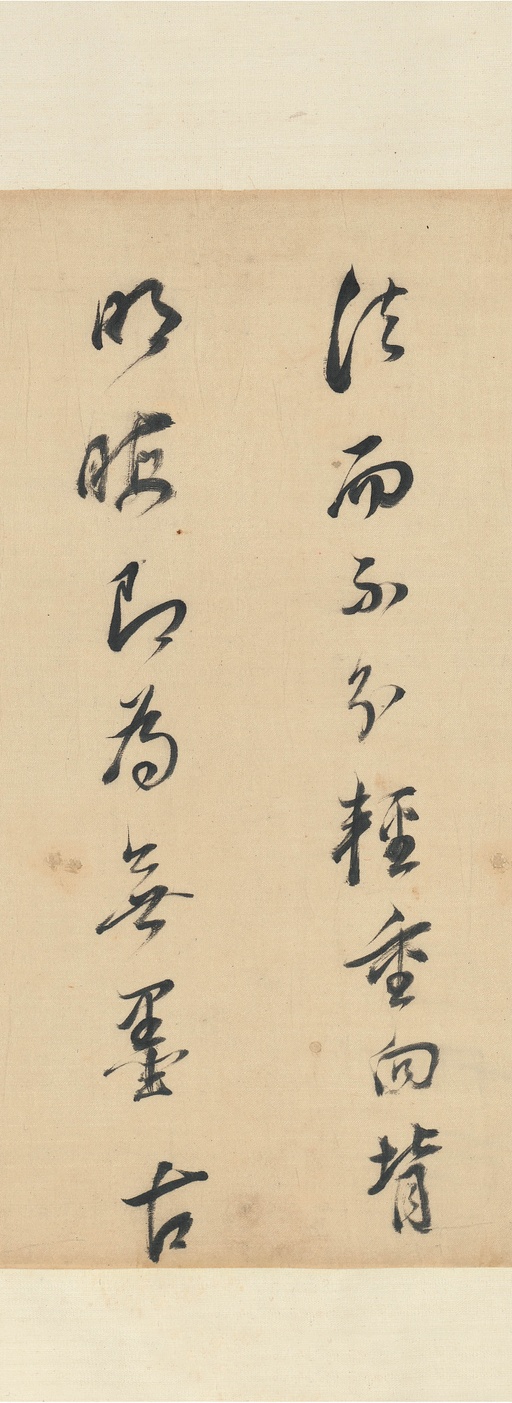 法而不分輕重向背
明晦即為無墨古